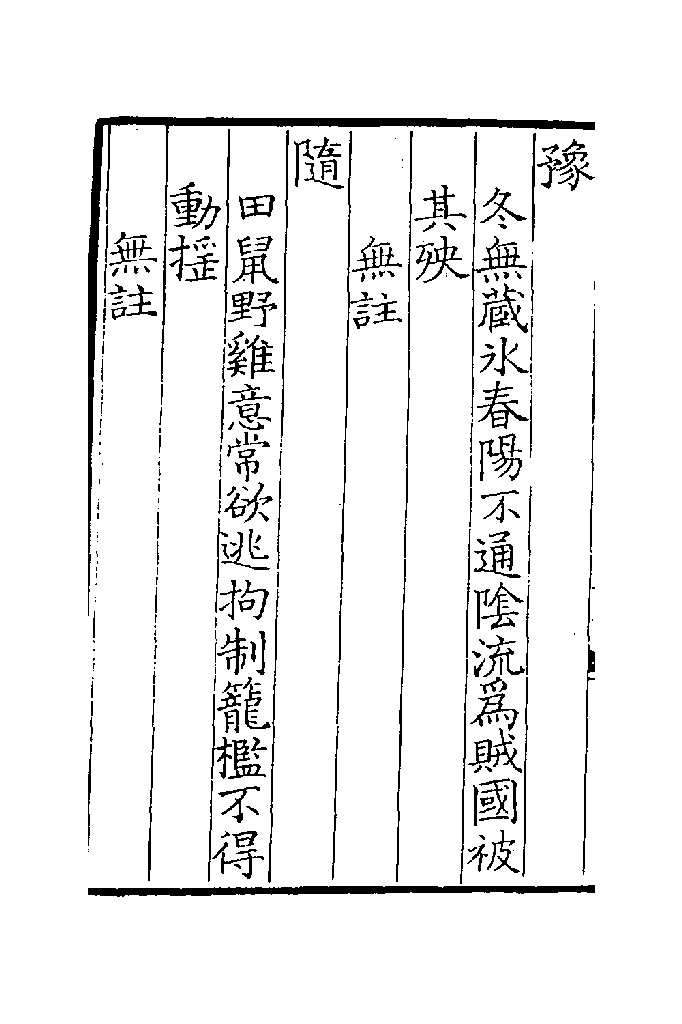 豫
冬無蔵氷春陽不通隂流爲賊國被
其殃
無註
隨
田鼠野雞意常欲逃拘制籠檻不得
動揺
無註